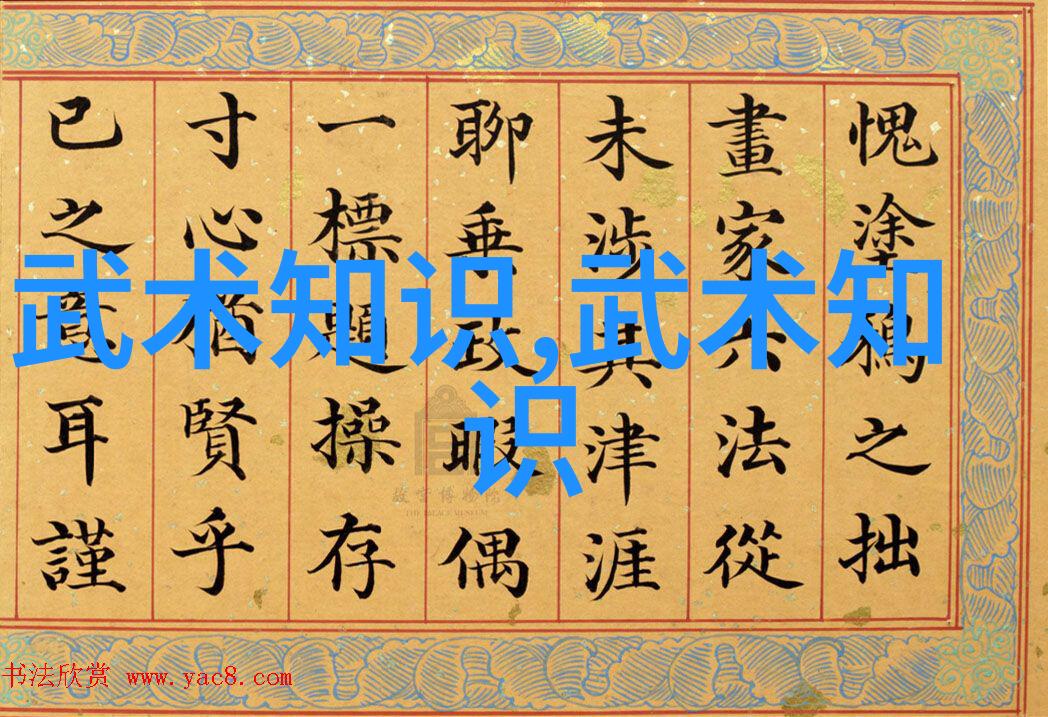 愧塗鴉之拙
畫家六法從
未涉其津涯
聊乗政暇偶
一標題操存
寸心猶賢乎
已之意耳謹
武术知识,武术知
识
故宫博物院
THE PALACE MUSEUM
书法欣赏 www.yac8.com